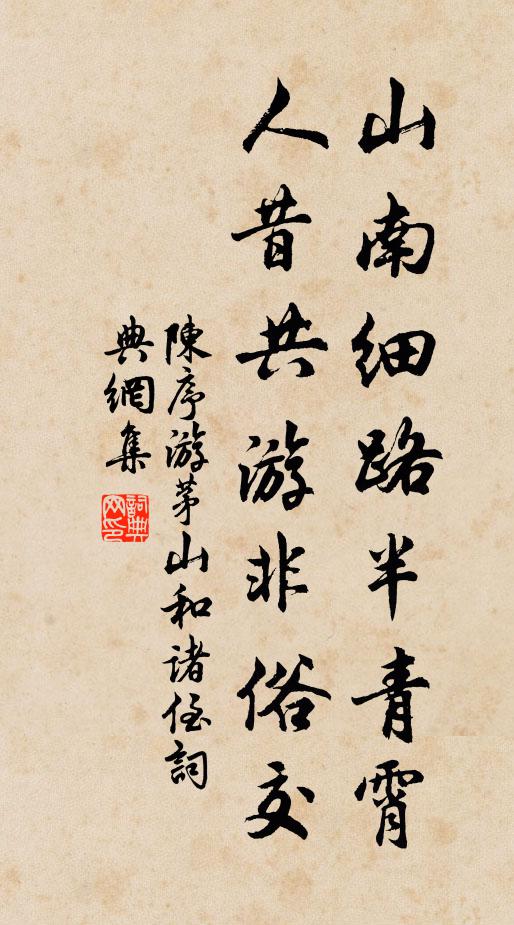 山南细路半青霄
人昔共游非俗交
陳序游茅山和諸侄詞
典網集
詞典網印